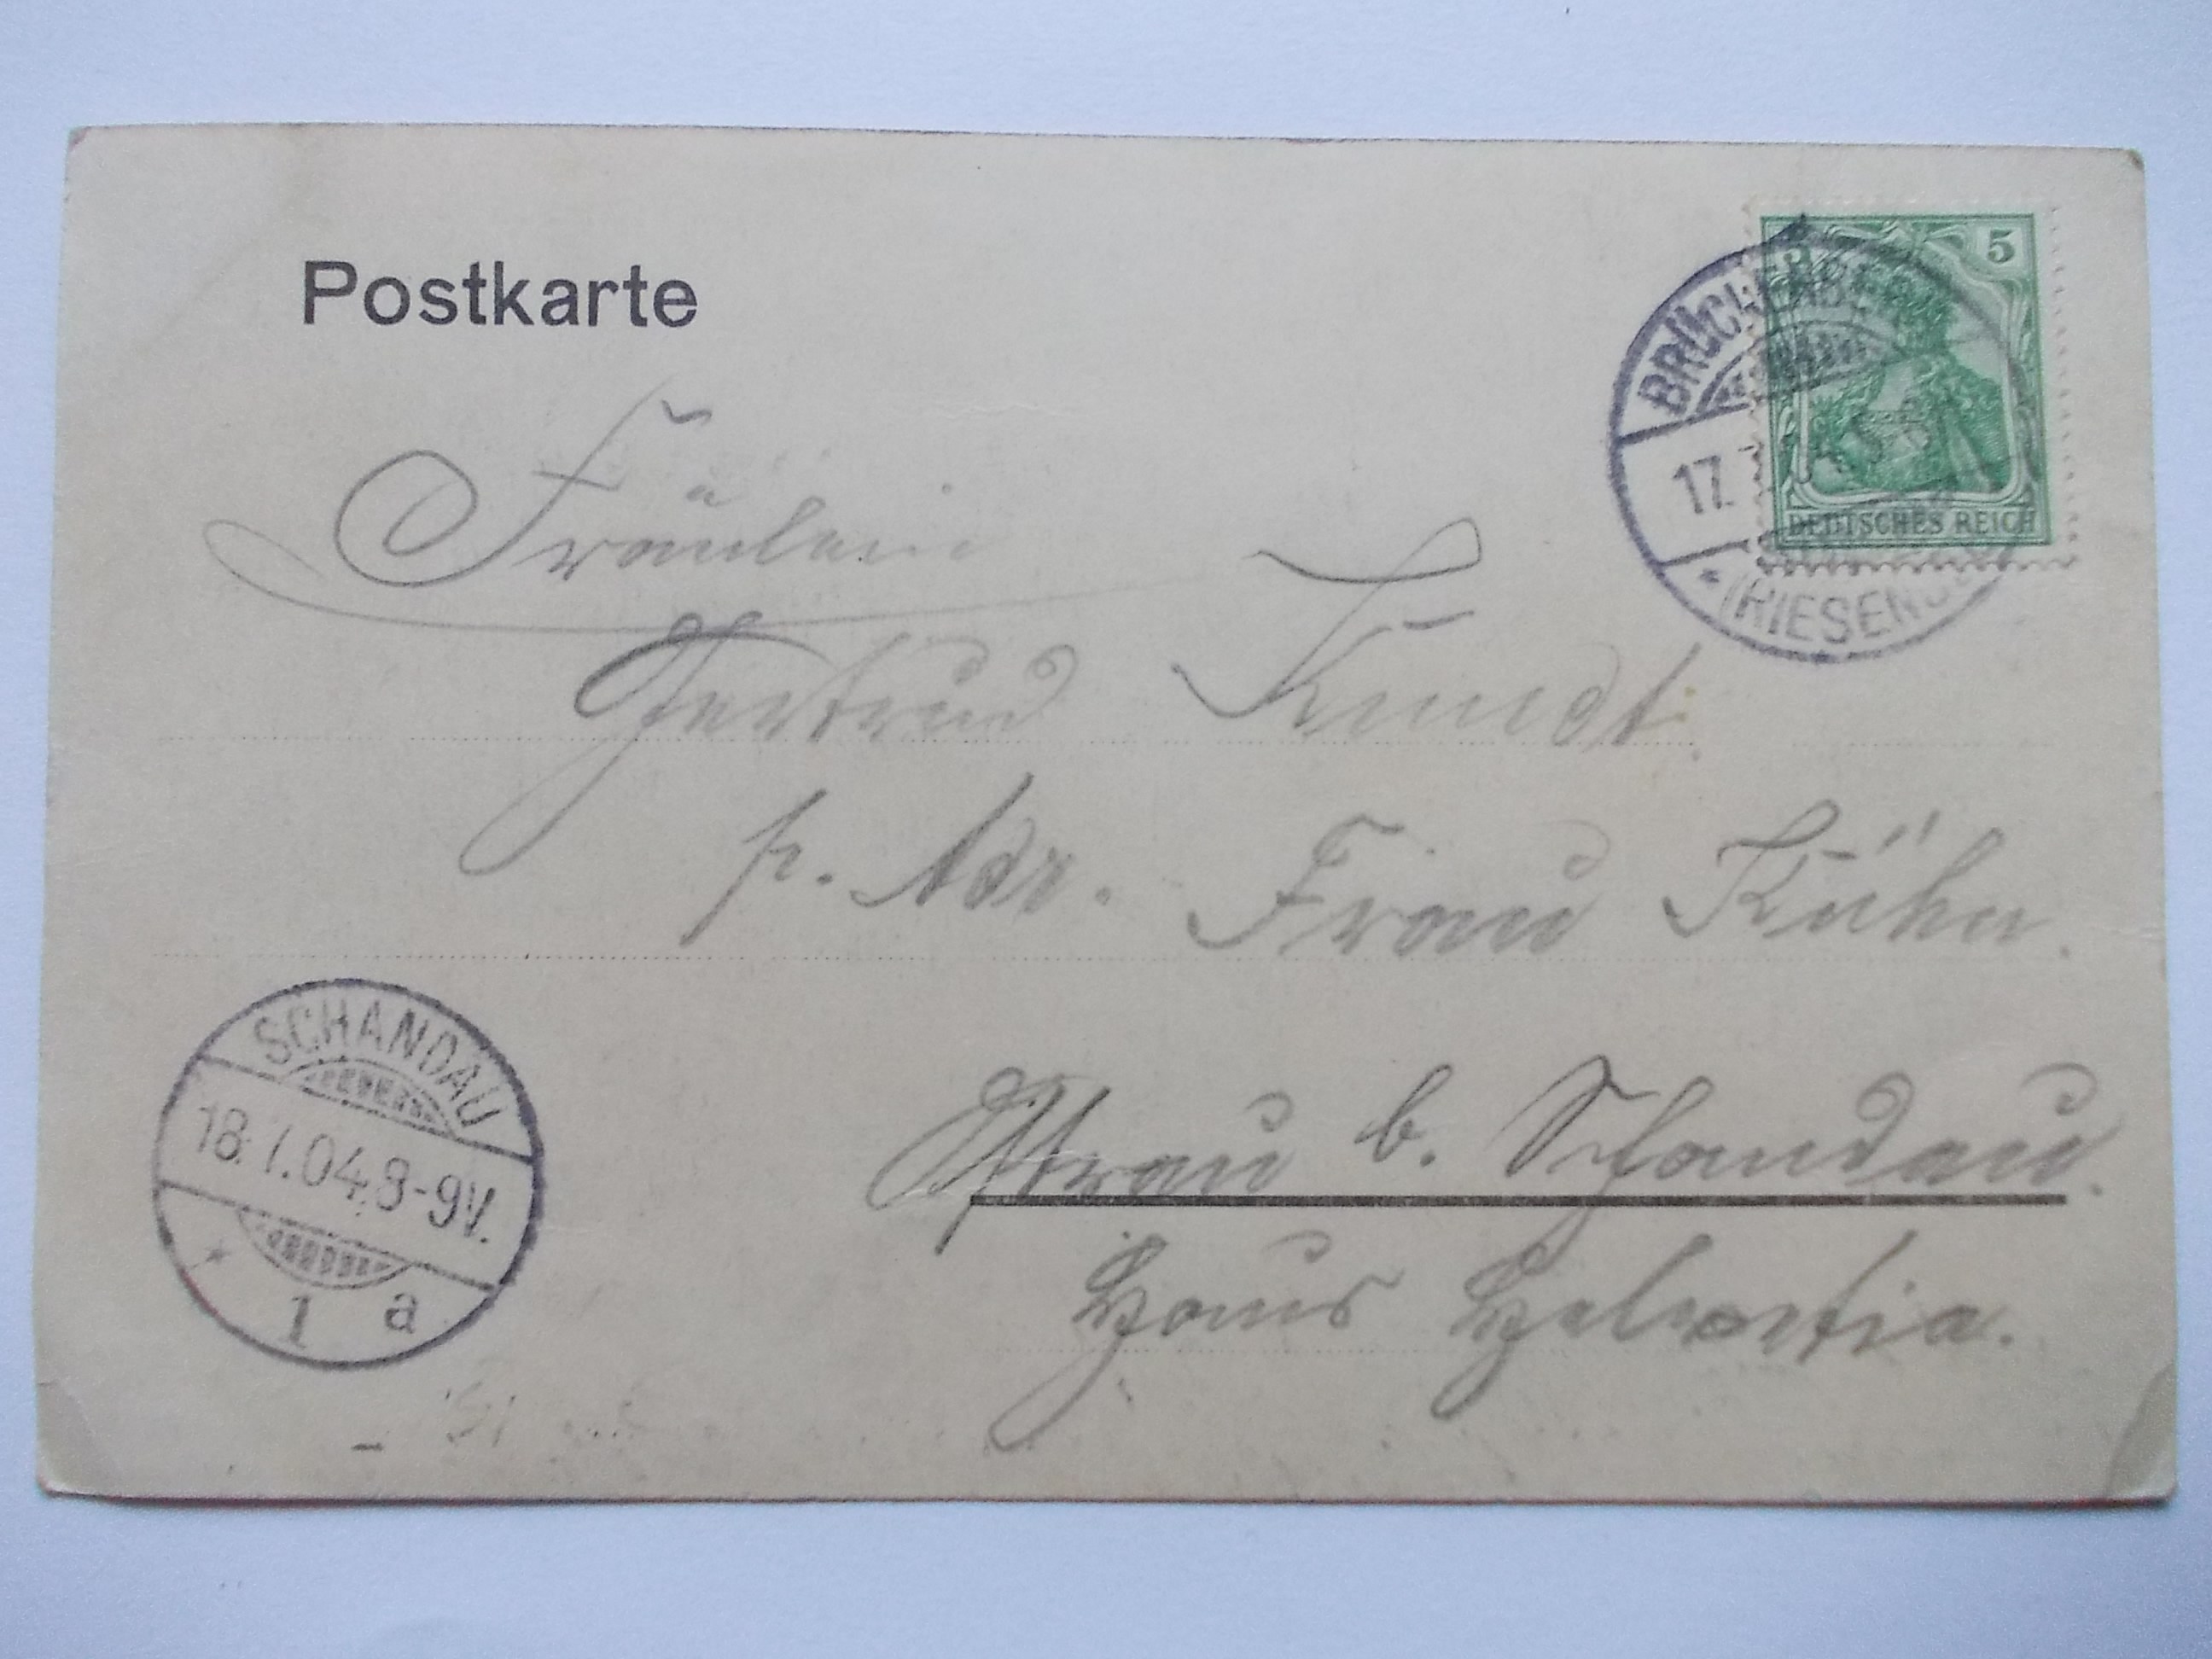 Postkarte
5
DEUTSCHES REICH
BRÜCKENBERG
17.
* (RIESENG
Fräulein
Gertrud Kundt.
p. Adr. Frau Kühn.
Ostrau b. Schandau.
Haus Helvetia.
SCHANDAU
18.7.04.8-9V.
* 1 a